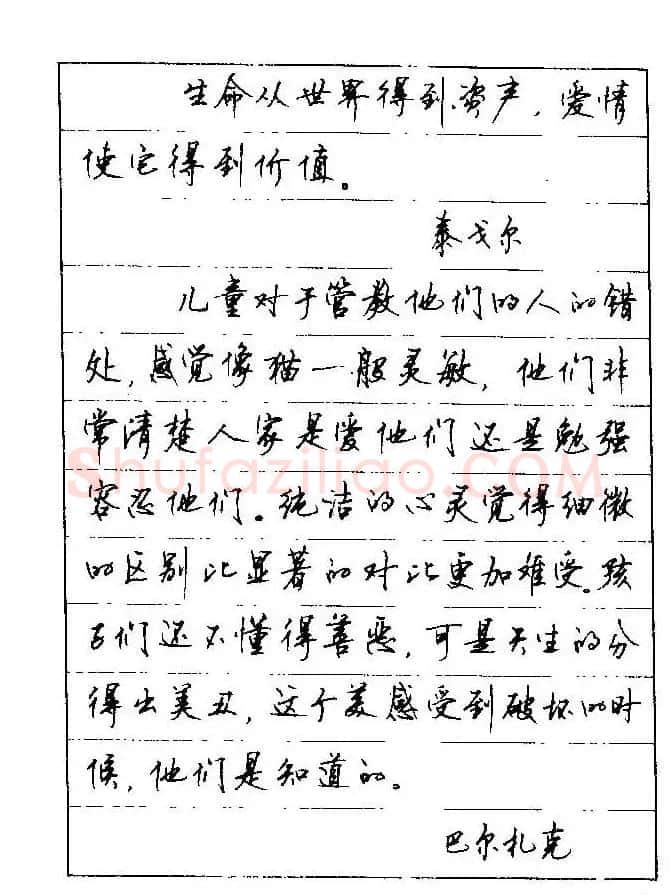 生命从世界得到资声，爱情
使它得到价值。
泰戈尔
儿童对于管教他们的人的错
处，感觉像猫一般灵敏，他们非
常清楚人家是爱他们还是勉强
容忍他们。纯洁的心灵觉得细微
的区别比显著的对比更加难受。孩
子们还不懂得善恶，可是天生的分
得出美丑，这个美感受到破坏的时
候，他们是知道的。
巴尔札克
Shufaziliao.COM